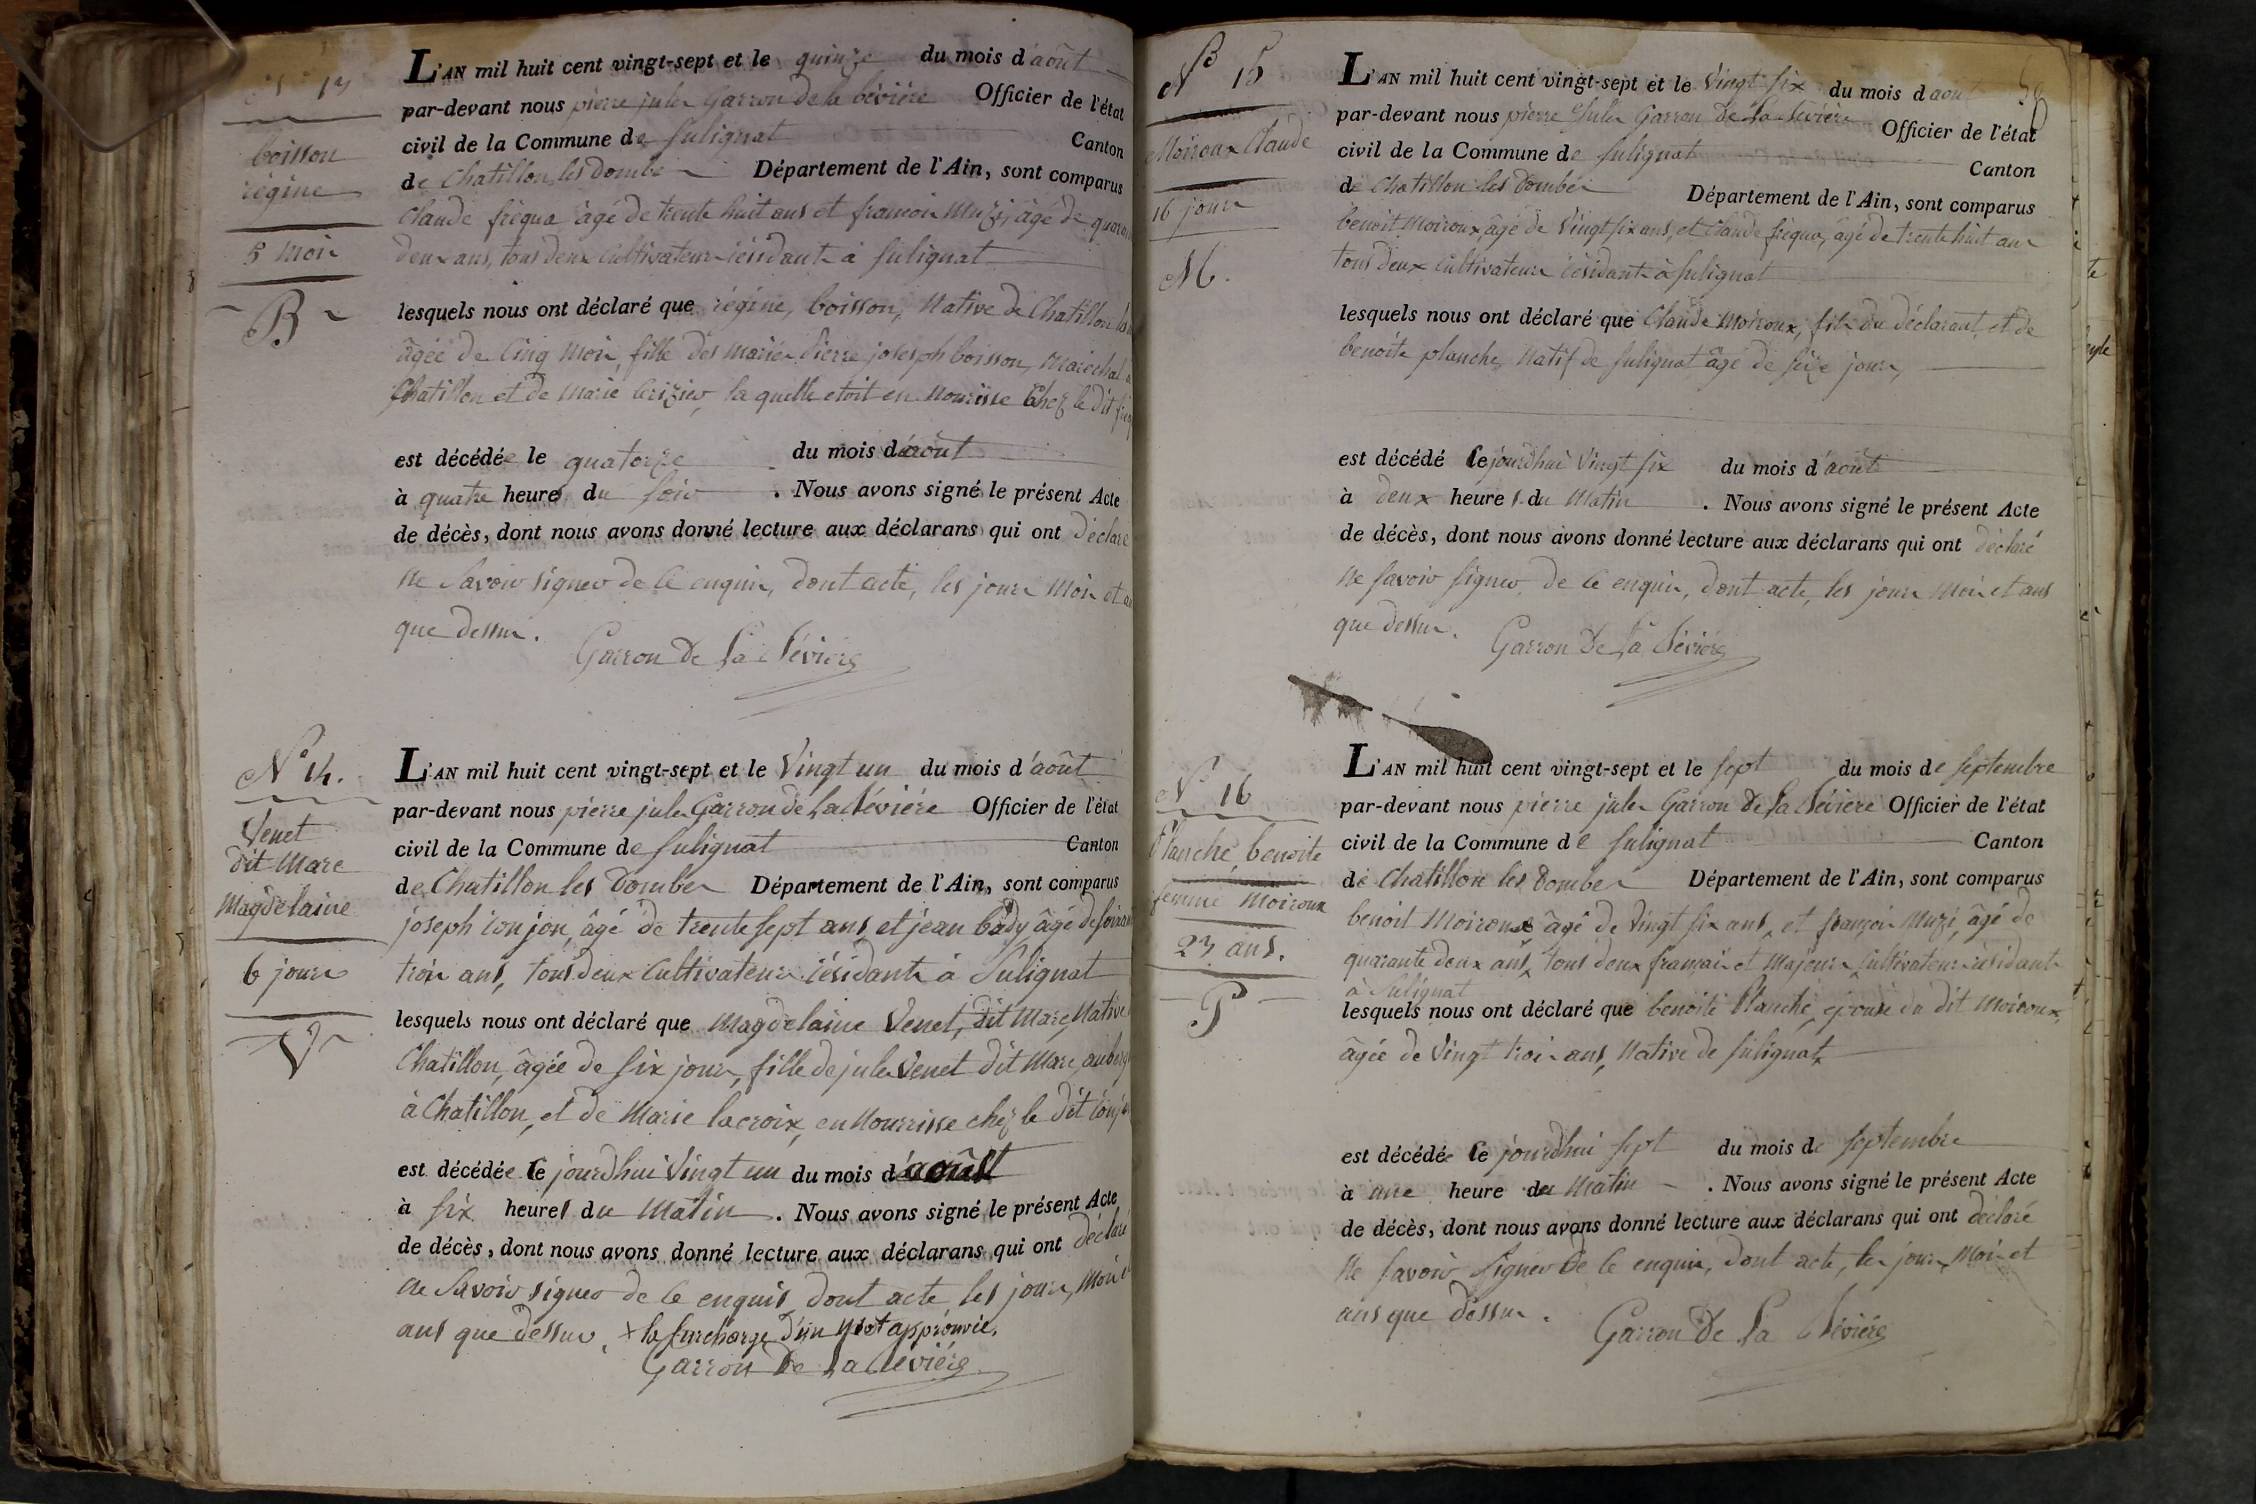 N° 13
boisson
régine
5 mois
B
L'AN mil huit cent vingt-sept et le quinze du mois d'août
par-devant nous pierre jules Garron de la bévière Officier de l'état
civil de la Commune de Sulignat Canton
de Chatillon les Dombes Département de l'Ain, sont comparus
Claude fréqua âgé de trente huit ans et françois Muzi, âgé de
deux ans, tous deux Cultivateurs résidants à Sulignat
lesquels nous ont déclaré que régine, boisson, Native de Chatillon
âgée de Cinq mois, fille des mariés Pierre joseph boisson, maréchal
Chatillon et de Marie Cerizier, la quelle etoit en Nourisse Chez le dit
est décédée le quatorze du mois d'août
à quatre heures du soir . Nous avons signé le présent Acte
de décès, dont nous avons donné lecture aux déclarans qui ont déclaré
Ne Savoir signer de Ce enquis, dont acte, les jours Mois et
que dessus.
Garron De La Bévière
N° 14.
Venet
dit Mare
Magdelaine
6 jours
V
L'AN mil huit cent vingt-sept et le Vingt un du mois d'août
par-devant nous pierre jules Garron de La Bévière Officier de l'état
civil de la Commune de Sulignat Canton
de Chatillon les Dombes Département de l'Ain, sont comparus
joseph Conjon, âgé de trente sept ans, et jean bady âgé de
trois ans, tous deux Cultivateurs résidants à Sulignat
lesquels nous ont déclaré que Magdelaine Venet, dit Mare, Native
Chatillon, âgée de six jours, fille de jules Venet dit Mare,
à Chatillon, et de Marie lacroix, en Nourrisse chez le dit
est décédée le jourd'hui Vingt un du mois d'août
à six heures du Matin . Nous avons signé le présent Acte
de décès, dont nous avons donné lecture aux déclarans qui ont déclaré
Ne Savoir signer de Ce enquis dont acte, les jours, Mois
ans que dessus, + la surcharge d'un mot approuvée.
Garron De La Bévière
N° 15
Moiroux Claude
16 jours
M.
L'AN mil huit cent vingt-sept et le Vingt six du mois d'août
par-devant nous pierre Jules Garron De La Bévière Officier de l'état
civil de la Commune de Sulignat Canton
de Chatillon les Dombes Département de l'Ain, sont comparus
benoit Moiroux, âgé de Vingt six ans, et Claude fréqua, âgé de trente huit ans
tous deux Cultivateurs résidants à Sulignat
lesquels nous ont déclaré que Claude Moiroux, fils du déclarant, et de
benoite planche, Natif de Sulignat âgé de seize jours,
est décédé le jourd'hui Vingt six du mois d'août
à deux heures du Matin . Nous avons signé le présent Acte
de décès, dont nous avons donné lecture aux déclarans qui ont déclaré
Ne savoir signer, de Ce enquis, dont acte, les jours Mois et ans
que dessus.
Garron De La Bévière
N° 16
Planche, benoite
femme Moiroux
23 ans.
P
L'AN mil huit cent vingt-sept et le sept du mois de septembre
par-devant nous pierre jules Garron De La Bévière Officier de l'état
civil de la Commune de Sulignat Canton
de Chatillon les Dombes Département de l'Ain, sont comparus
benoit Moiroux âgé de Vingt six ans, et françois Muzi, âgé de
quarante deux ans, tous deux français et Majeurs Cultivateurs résidants
à Sulignat
lesquels nous ont déclaré que benoite Planche, epouse du dit Moiroux,
âgée de Vingt trois ans, Native de Sulignat,
est décédée le jourd'hui sept du mois de septembre
à une heure du Matin . Nous avons signé le présent Acte
de décès, dont nous avons donné lecture aux déclarans qui ont déclaré
Ne savoir signer De Ce enquis, dont acte, les jours, Mois et
ans que dessus.
Garron De La Bévière